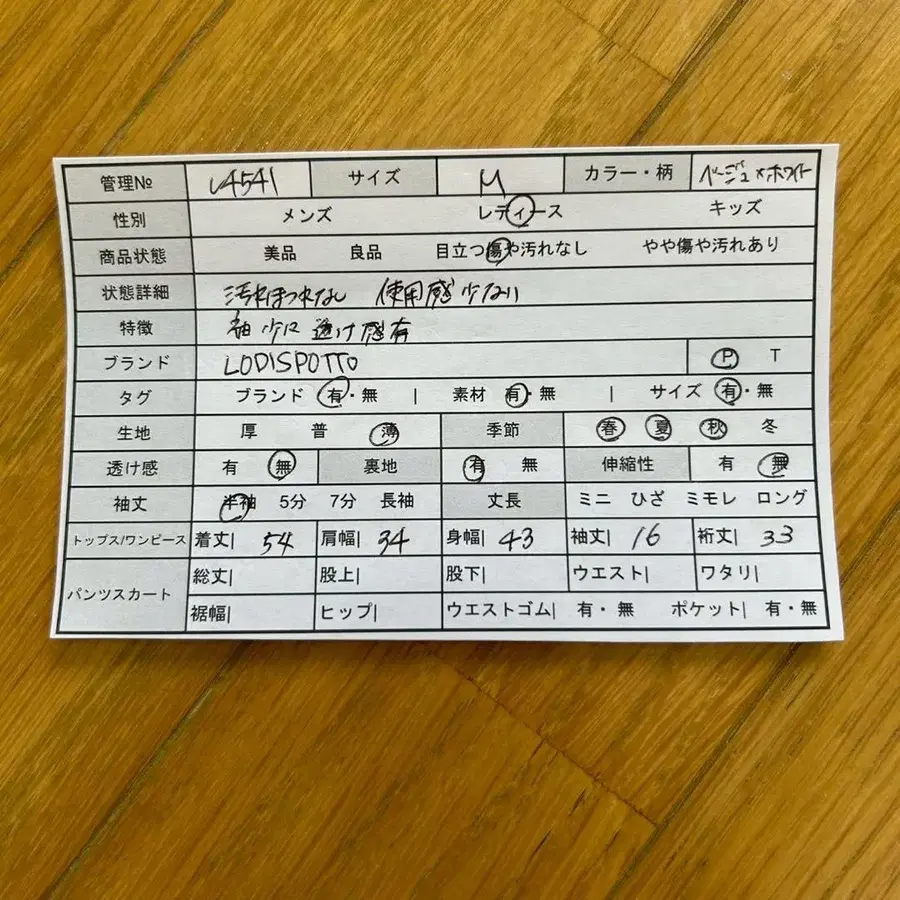 管理№ U4541 サイズ M カラー・柄 ベージュ×ホワイト
性別 メンズ レディース キッズ
商品状態 美品 良品 目立つ傷や汚れなし やや傷や汚れあり
状態詳細 汚れほつれなし 使用感少ない
特徴 袖 少し透け感有
ブランド LODISPOTTO P T
タグ ブランド 有・無 | 素材 有・無 | サイズ 有・無
生地 厚 普 薄 季節 春 夏 秋 冬
透け感 有 無 裏地 有 無 伸縮性 有 無
袖丈 半袖 5分 7分 長袖 丈長 ミニ ひざ ミモレ ロング
トップス/ワンピース 着丈| 54 肩幅| 34 身幅| 43 袖丈| 16 裄丈| 33
パンツスカート 総丈| 股上| 股下| ウエスト| ワタリ|
裾幅| ヒップ| ウエストゴム| 有・無 ポケット| 有・無